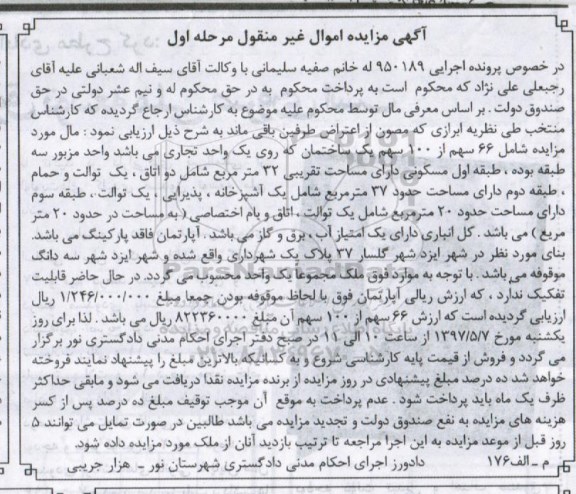 آگهی مزایده اموال غیر منقول مرحله اول
در خصوص پرونده اجرایی ۹۵۰۱۸۹ له خانم صفیه سلیمانی با وکالت آقای سیف اله شعبانی علیه آقای
رجبعلی علی نژاد که محکوم است به پرداخت محکوم به در حق محکوم له و نیم عشر دولتی در حق
صندوق دولت . بر اساس معرفی مال توسط محکوم علیه موضوع به کارشناس ارجاع گردیده که کارشناس
منتخب طی نظریه ابرازی که مصون از اعتراض طرفین باقی ماند به شرح ذیل ارزیابی نمود : مال مورد
مزایده شامل ۶۶ سهم از ۱۰۰ سهم یک ساختمان که روی یک واحد تجاری می باشد واحد مزبور سه
طبقه بوده ، طبقه اول مسکونی دارای مساحت تقریبی ۳۲ متر مربع شامل دو اتاق ، یک توالت و حمام
، طبقه دوم دارای مساحت حدود ۳۷ مترمربع شامل یک آشپزخانه ، پذیرایی ، یک توالت ، طبقه سوم
دارای مساحت حدود ۲۰ مترمربع شامل یک توالت ، اتاق و بام اختصاصی ( به مساحت در حدود ۲۰ متر
مربع ) می باشد . کل انباری دارای یک امتیاز آب ، برق و گاز می باشد ، آپارتمان فاقد پارکینگ می باشد.
بنای مورد نظر در شهر ایزد شهر گلسار ۳۷ پلاک یک شهرداری واقع شده و شهر ایزد شهر سه دانگ
موقوفه می باشد . با توجه به موارد فوق ملک مجموعا یک واحد محسوب می گردد. در حال حاضر قابلیت
تفکیک ندارد ، که ارزش ریالی آپارتمان فوق با لحاظ موقوفه بودن جمعا مبلغ ۱/۲۴۶/۰۰۰/۰۰۰ ریال
ارزیابی گردیده است که ارزش ۶۶ سهم از ۱۰۰ سهم آن مبلغ ۸۲۲۳۶۰۰۰۰ ریال می باشد . لذا برای روز
یکشنبه مورخ ۱۳۹۷/۵/۷ از ساعت ۱۰ الی ۱۱ در صبح دفتر اجرای احکام مدنی دادگستری نور برگزار
می گردد و فروش از قیمت پایه کارشناسی شروع و به کسانیکه بالاترین مبلغ را پیشنهاد نمایند فروخته
خواهد شد ده درصد مبلغ پیشنهادی در روز مزایده از برنده مزایده نقدا دریافت می شود و مابقی حداکثر
ظرف یک ماه باید پرداخت شود . عدم پرداخت به موقع آن موجب توقیف مبلغ ده درصد پس از کسر
هزینه های مزایده به نفع صندوق دولت و تجدید مزایده می باشد طالبین در صورت تمایل می توانند ۵
روز قبل از موعد مزایده به این اجرا مراجعه تا ترتیب بازدید آنان از ملک مورد مزایده داده شود.
م _ الف ۱۷۶ دادورز اجرای احکام مدنی دادگستری شهرستان نور _ هزار جریبی